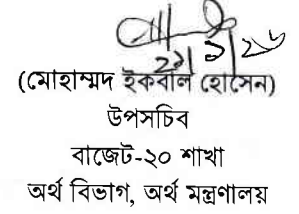 ২১/১/২৬
(মোহাম্মদ ইকবাল হোসেন)
উপসচিব
বাজেট-২০ শাখা
অর্থ বিভাগ, অর্থ মন্ত্রণালয়